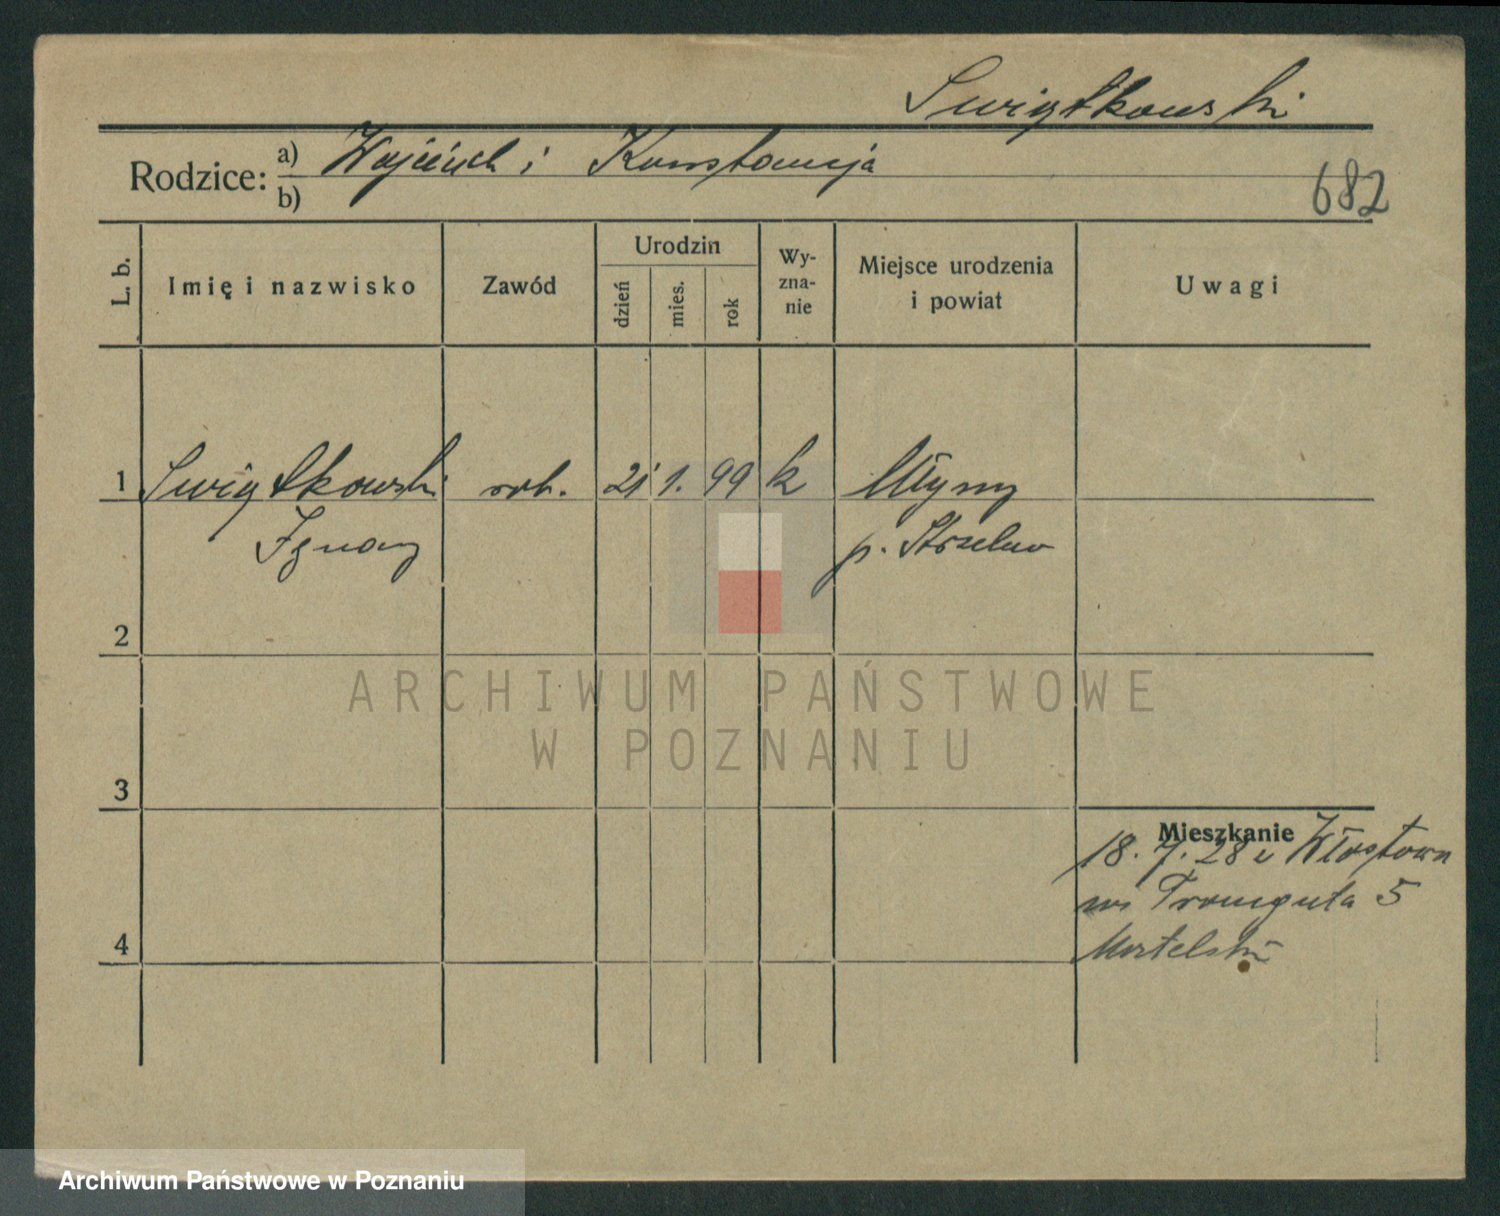 Swiątkowski
Rodzice: a) Wojciech i Konstancja
b)
682
L. b. Imię i nazwisko Zawód Urodzin dzień mies. rok Wy-zna-nie Miejsce urodzenia i powiat Uwagi
1 Swiątkowski rob. 21 1. 99 k Młyny
Ignacy p. Strzelno
2
ARCHIWUM PAŃSTWOWE
W POZNANIU
3
Mieszkanie
18. 7. 28 z
Traugutta 5
4
Archiwum Państwowe w Poznaniu